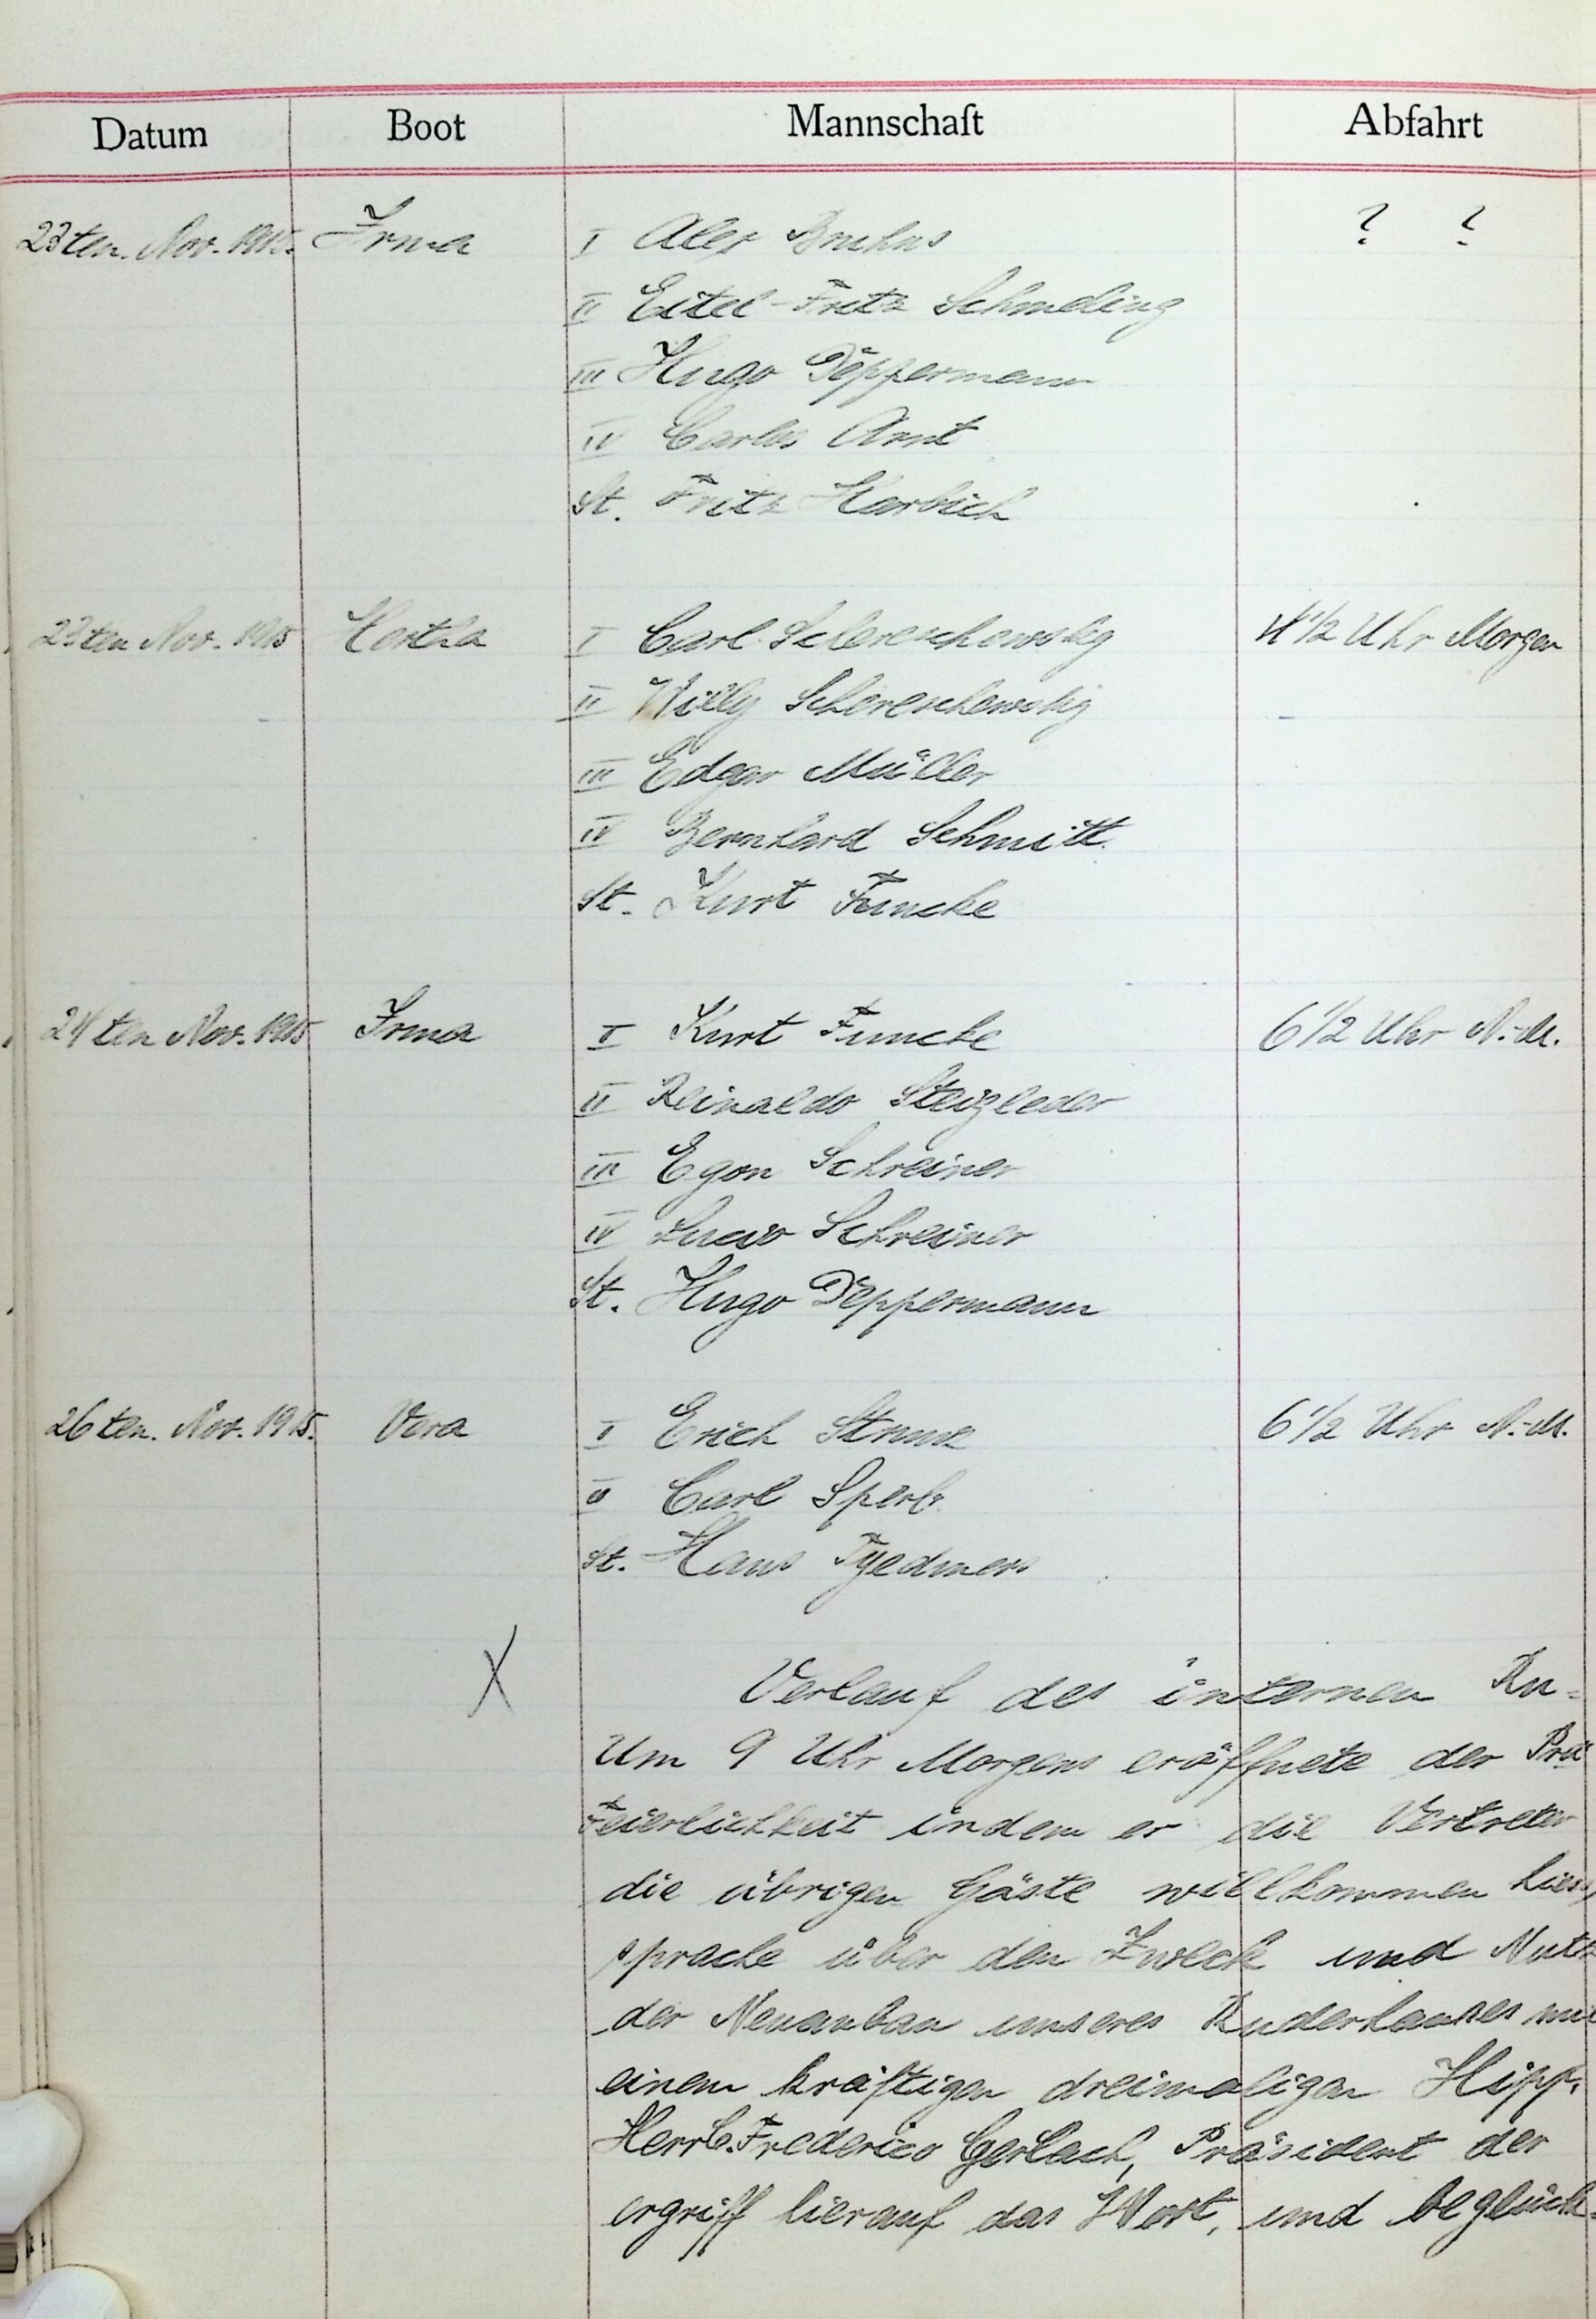 Datum Boot Mannschaft Abfahrt
23ten. Nov. 1915. Irma I Alex Bruhns ? ?
II Eitel-Fritz Schmeling
III Hugo Deppermann
IV Carlos Arnt
St. Fritz Harbich
23ten Nov. 1915 Hertha I Carl Schereschewsky 4 1/2 Uhr Morgen
II Willy Schereschewsky
III Edgar Müller
IV Bernhard Schmitt.
St. Kurt Funcke
24ten Nov. 1915 Irma I Kurt Funcke 6 1/2 Uhr N.-M.
II Reinaldo Steigleder
III Egon Schreiner
IV Lucio Schreiner
St. Hugo Deppermann
26ten. Nov. 1915. Vera I Erich Strunk 6 1/2 Uhr N.-M.
II Carl Sperb.
St. Hans Tjedmers
X Verlauf des internen Ru-
Um 9 Uhr Morgens eröffnete der Prä
Feierlichkeit indem er die Vertreter
die übrigen Gäste willkommen hiess,
sprache über den Zweck und Nutz
der Neuanbau unseres Ruderhauses mit
einem kräftigen dreimaligen Hipp,
Herr C. Frederico Gerlach, Präsident der
ergriff hierauf das Wort, und beglück-